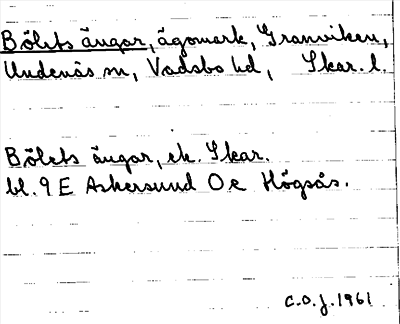 Bölets ängar, ägomark, Granviken,
Undenäs sn, Vadsbo hd, Skar. l.
Bölets ängar, ek. Skar.
bl. 9 E Askersund Oe Högsås.
C.O.J. 1961